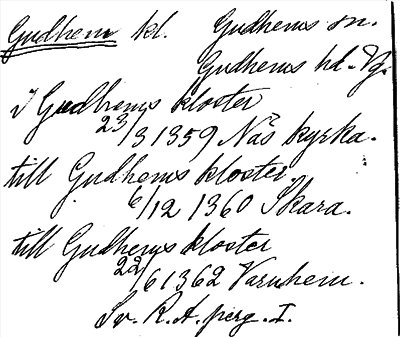 Gudhem kl. Gudhems sn.
Gudhems hd. Vg.
I Gudhems kloster
23/3 1359 Näs kyrka.
till Gudhems kloster
6/12 1360 Skara.
till Gudhems kloster
22/6 1362 Varnhem.
Sv. R. A. perg. I.